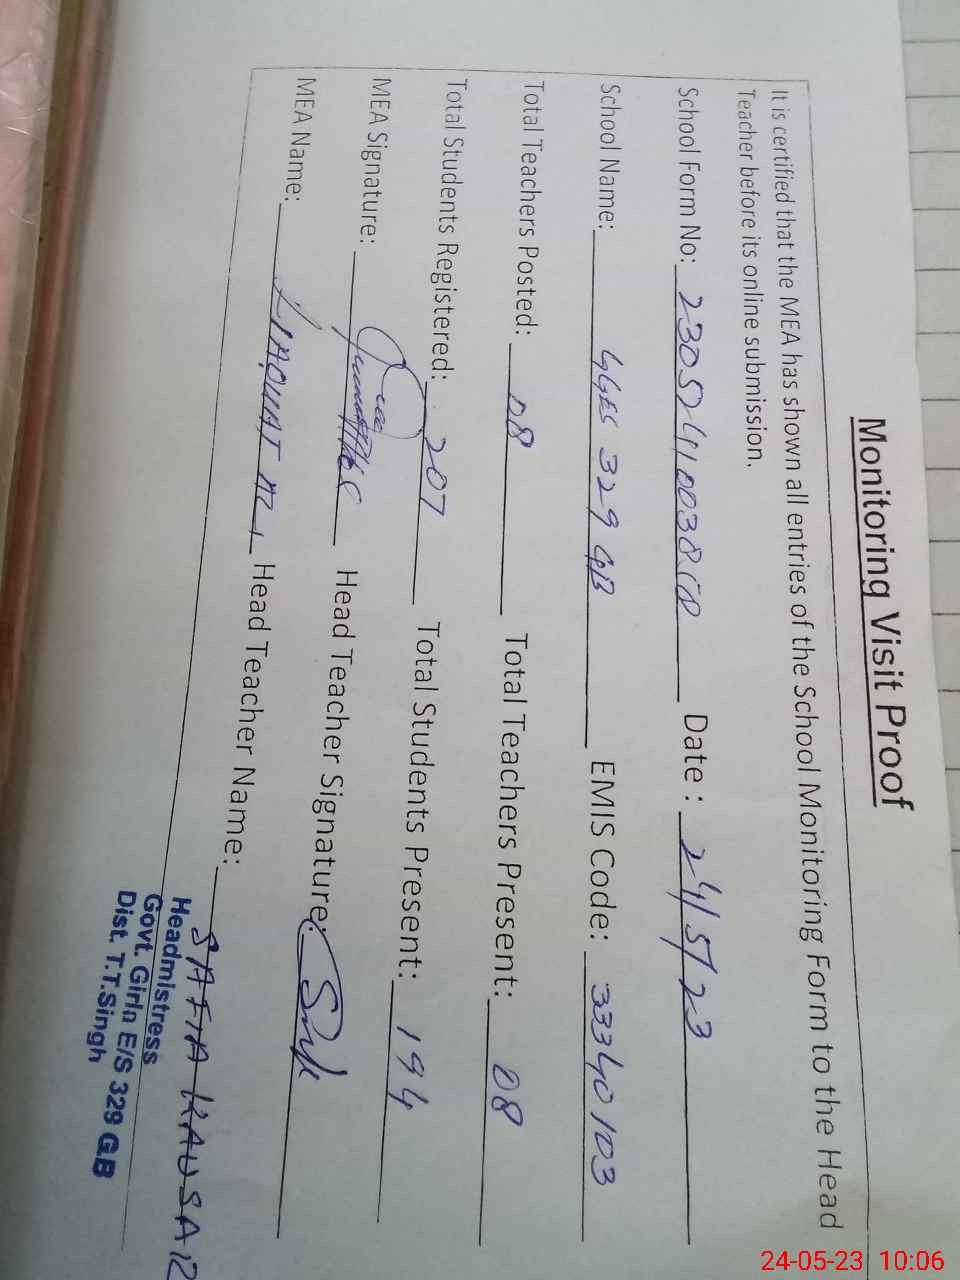 Monitoring Visit Proof
It is certified that the MEA has shown all entries of the School Monitoring Form to the Head
Teacher before its online submission.
School Form No: Date : 24/5/23
School Name: GGES 329 GB EMIS Code: 33340103
Total Teachers Posted: 08 Total Teachers Present: 08
Total Students Registered: 207 Total Students Present: 194
MEA Signature: Head Teacher Signature:
MEA Name: LIAQUAT Head Teacher Name: SAFIA KAUSAR
Headmistress
Govt. Girls E/S 329 GB
Dist. T.T.Singh
24-05-23 10:06